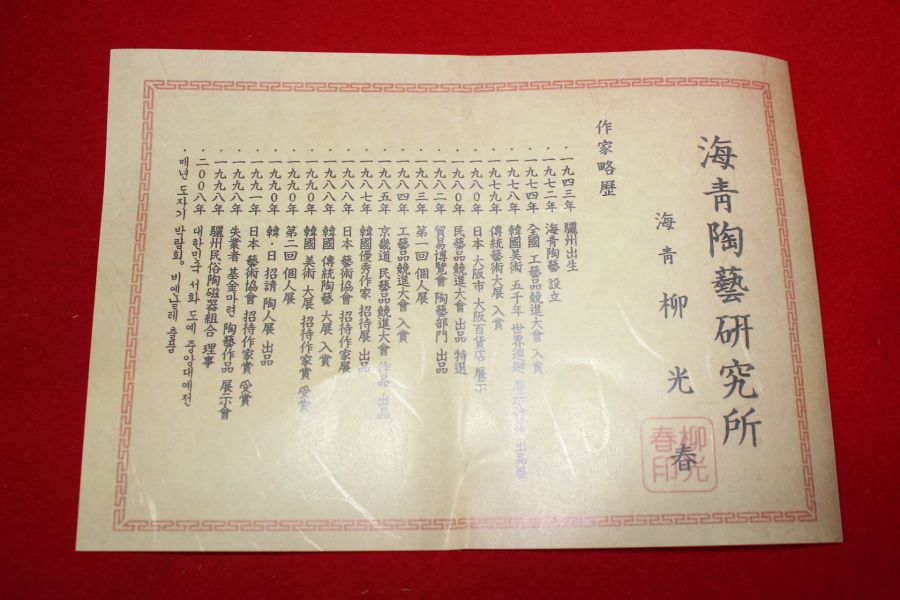 海青陶藝硏究所
海靑 柳光春
柳光春印
作家略歷
· 一九四三年 驪州出生
· 一九七二年 海靑陶藝 設立
· 一九七四年 全國 工藝品競進大會 入賞
· 一九七八年 韓國美術 五千年 世界巡廻 展示作品 出品展
· 一九七九年 傳統藝術大展 入賞
· 一九八〇年 日本 大阪市 大阪百貨店 展示
· 一九八〇年 民藝品競進大會 出品 特選
· 一九八二年 貿易博覽會 陶藝部門 出品
· 一九八三年 第一回 個人展
· 一九八四年 工藝品競進大會 入賞
· 一九八五年 京畿道 民藝品競進大會 作品 出品
· 一九八七年 韓國優秀作家 招待展 出品
· 一九八八年 日本 藝術協會 招待作家展
· 一九八八年 韓國 傳統陶藝 大展 入賞
· 一九九〇年 韓國 美術 大展 招待作家賞 受賞
· 一九九〇年 第二回 個人展
· 一九九〇年 韓·日 招請 陶人展 出品
· 一九九一年 日本 藝術協會 招待作家賞 受賞
· 一九九八年 失業者 基金마련 陶藝作品 展示會
· 一九九八年 驪州民俗陶磁器組合 理事
· 二〇〇八年 대한민국 서화 도예 중앙대예전
· 매년 도자기 박람회, 비엔날레 출품